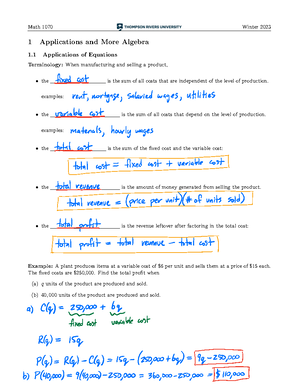 Math 1070 THOMPSON RIVERS UNIVERSITY Winter 2023
1 Applications and More Algebra
1.1 Applications of Equations
Terminology: When manufacturing and selling a product,
• the fixed cost is the sum of all costs that are independent of the level of production.
examples: rent, mortgage, salaried wages, utilities
• the variable cost is the sum of all costs that depend on the level of production.
examples: materials, hourly wages
• the total cost is the sum of the fixed cost and the variable cost:
total cost = fixed cost + variable cost
• the total revenue is the amount of money generated from selling the product.
total revenue = (price per unit)(# of units sold)
• the total profit is the revenue leftover after factoring in the total cost:
total profit = total revenue - total cost
Example: A plant produces items at a variable cost of $6 per unit and sells them at a price of $15 each.
The fixed costs are $250,000. Find the total profit when
(a) q units of the product are produced and sold.
(b) 40,000 units of the product are produced and sold.
a) C(q) = 250,000 + 6q
fixed cost variable cost
R(q) = 15q
P(q) = R(q) - C(q) = 15q - (250,000 + 6q) = 9q - 250,000
b) P(40,000) = 9(40,000) - 250,000 = 360,000 - 250,000 = $110,000